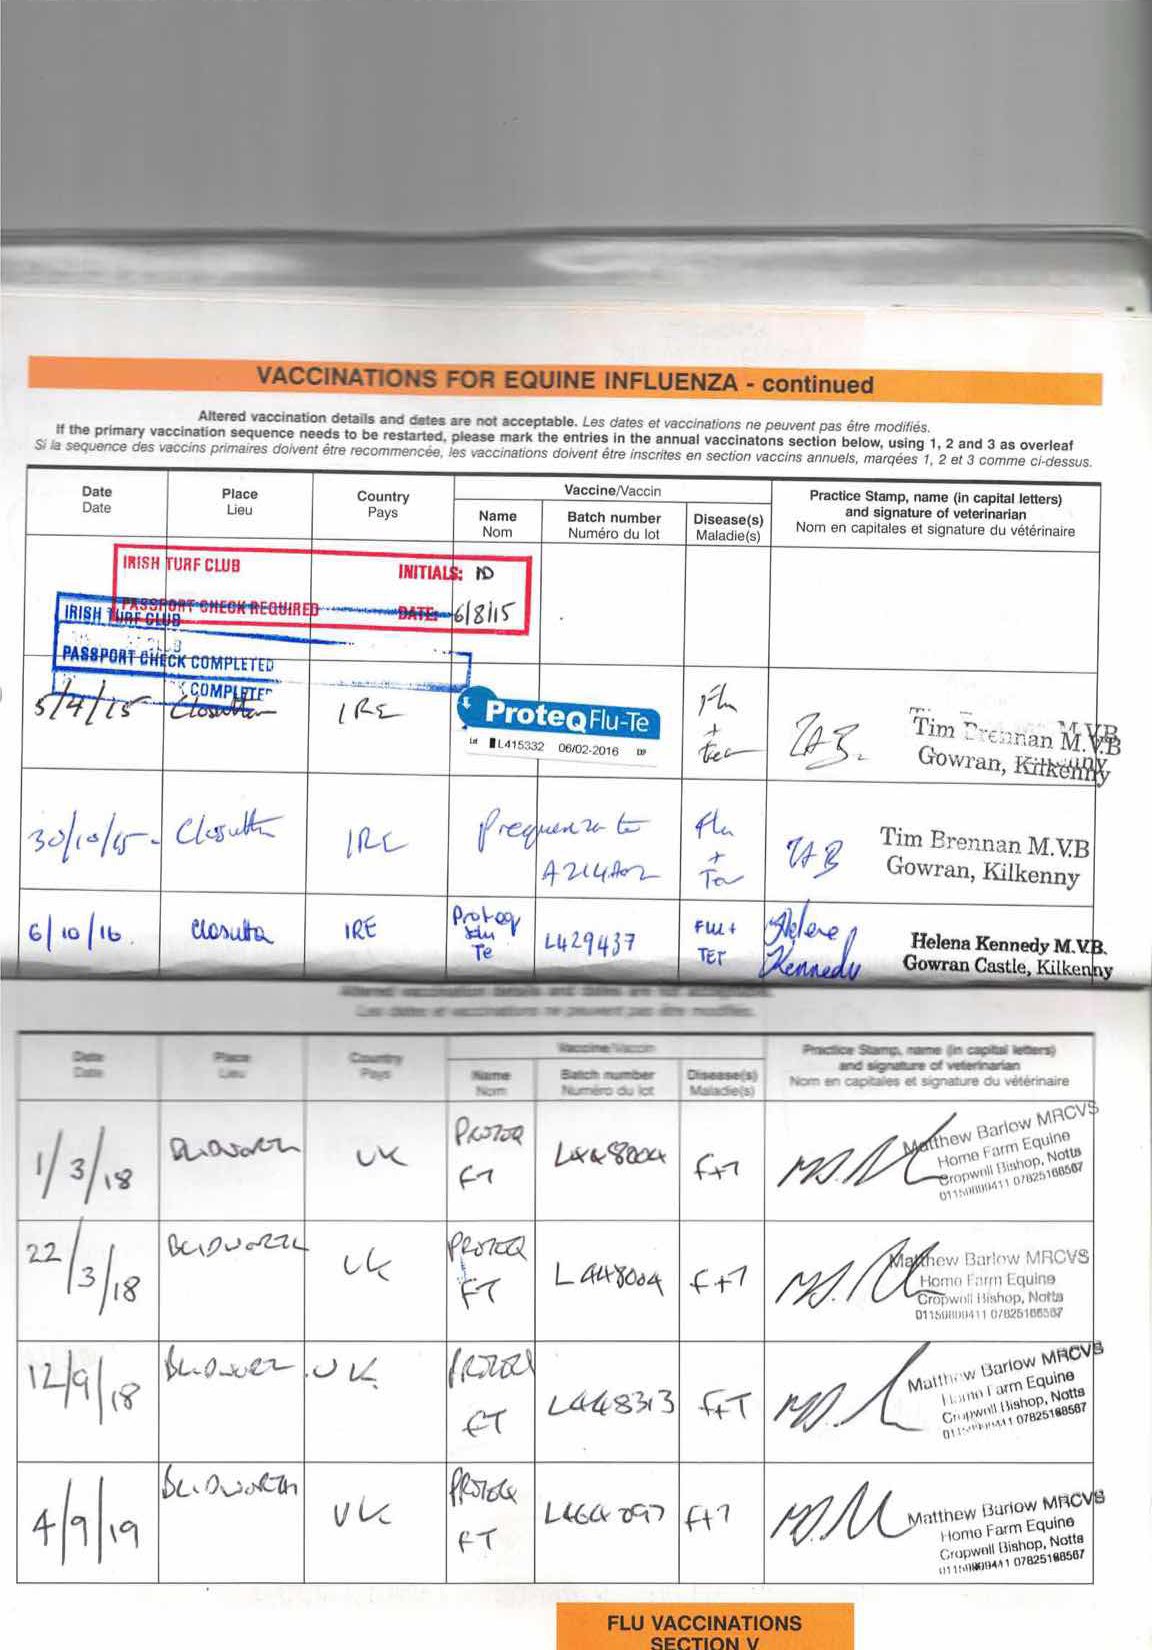 VACCINATIONS FOR EQUINE INFLUENZA - continued
Altered vaccination details and dates are not acceptable. Les dates et vaccinations ne peuvent pas être modifiés.
If the primary vaccination sequence needs to be restarted, please mark the entries in the annual vaccinatons section below, using 1, 2 and 3 as overleaf
Si la sequence des vaccins primaires doivent être recommencée, les vaccinations doivent être inscrites en section vaccins annuels, marqées 1, 2 et 3 comme ci-dessus.
Date Place Country Vaccine/Vaccin Practice Stamp, name (in capital letters)
Date Lieu Pays Name Batch number Disease(s) and signature of veterinarian
Nom Numéro du lot Maladie(s) Nom en capitales et signature du vétérinaire
IRISH TURF CLUB INITIALS: ND
PASSPORT CHECK REQUIRED DATE: 6/8/15
IRISH TURF CLUB
PASSPORT CHECK COMPLETED
COMPLETED
5/4/15 Closutton IRE ProteqFlu-Te Flu + tet Tim Brennan M.V.B
Lot L415332 06/02-2016 Gowran, Kilkenny
30/10/15 Closutton IRE Prequenza te Flu + Tet Tim Brennan M.V.B
A214A02 Gowran, Kilkenny
6/10/16. Closutta IRE Proteq Flu Te L429437 FLU + TET Helene Kennedy Helena Kennedy M.V.B.
Gowran Castle, Kilkenny
Altered vaccination details and dates are not acceptable.
Les dates et vaccinations ne peuvent pas être modifiés.
Date Place Country Vaccine/Vaccin Practice Stamp, name (in capital letters)
Date Lieu Pays Name Batch number Disease(s) and signature of veterinarian
Nom Numéro du lot Maladie(s) Nom en capitales et signature du vétérinaire
1/3/18 BLIDWORTH UK PROTEQ FT L448004 F+T Matthew Barlow MRCVS
Home Farm Equine
Cropwell Bishop, Notts
07825168567
22/3/18 BLIDWORTH UK PROTEQ FT L448004 F+T Matthew Barlow MRCVS
Home Farm Equine
Cropwell Bishop, Notts
07825168567
12/9/18 BLIDWORTH UK. PROTEQ FT L448313 F+T Matthew Barlow MRCVS
Home Farm Equine
Cropwell Bishop, Notts
07825168567
4/9/19 BLIDWORTH UK PROTEQ FT L464097 F+T Matthew Barlow MRCVS
Home Farm Equine
Cropwell Bishop, Notts
07825168567
FLU VACCINATIONS
SECTION V